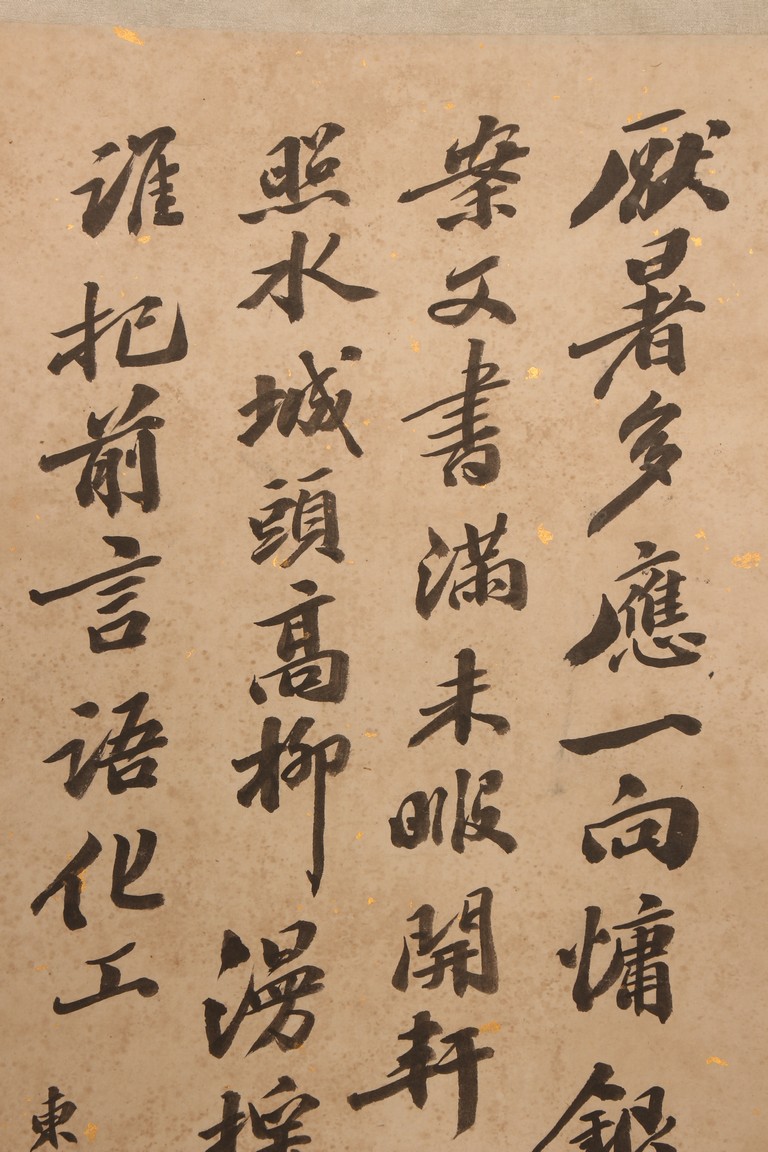 厭暑多應一向慵銀
案文書滿未暇開軒
照水城頭高柳漫採
誰把前言語化工
東